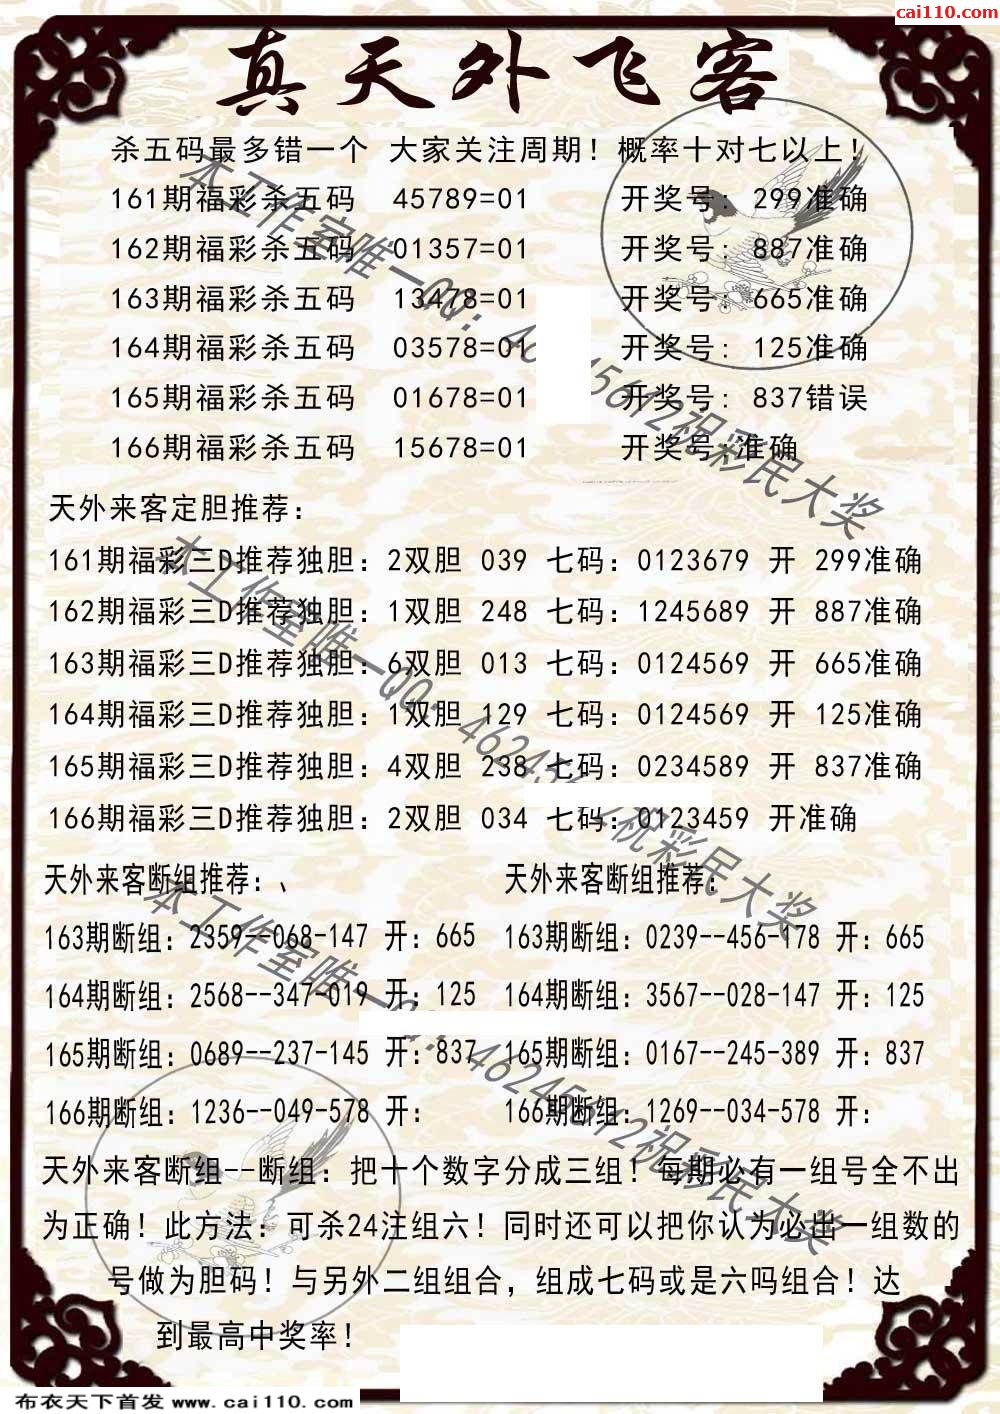 cai110.com
真天外飞客
杀五码最多错一个 大家关注周期！概率十对七以上！
161期福彩杀五码 45789=01 开奖号：299准确
162期福彩杀五码 01357=01 开奖号：887准确
163期福彩杀五码 13478=01 开奖号：665准确
164期福彩杀五码 03578=01 开奖号：125准确
165期福彩杀五码 01678=01 开奖号：837错误
166期福彩杀五码 15678=01 开奖号：准确
天外来客定胆推荐：
161期福彩三D推荐独胆：2双胆 039 七码：0123679 开 299准确
162期福彩三D推荐独胆：1双胆 248 七码：1245689 开 887准确
163期福彩三D推荐独胆：6双胆 013 七码：0124569 开 665准确
164期福彩三D推荐独胆：1双胆 129 七码：0124569 开 125准确
165期福彩三D推荐独胆：4双胆 238 七码：0234589 开 837准确
166期福彩三D推荐独胆：2双胆 034 七码：0123459 开准确
天外来客断组推荐：、 天外来客断组推荐：
163期断组：2359--068-147 开：665 163期断组：0239--456-178 开：665
164期断组：2568--347-019 开：125 164期断组：3567--028-147 开：125
165期断组：0689--237-145 开：837 165期断组：0167--245-389 开：837
166期断组：1236--049-578 开： 166期断组：1269--034-578 开：
天外来客断组--断组：把十个数字分成三组！每期必有一组号全不出
为正确！此方法：可杀24注组六！同时还可以把你认为必出一组数的
号做为胆码！与另外二组组合，组成七码或是六吗组合！达
到最高中奖率！
本工作室唯一QQ：46245612祝彩民大奖
本工作室唯一QQ：46245612祝彩民大奖
本工作室唯一QQ：46245612祝彩民大奖
布衣天下首发 www.cai110.com